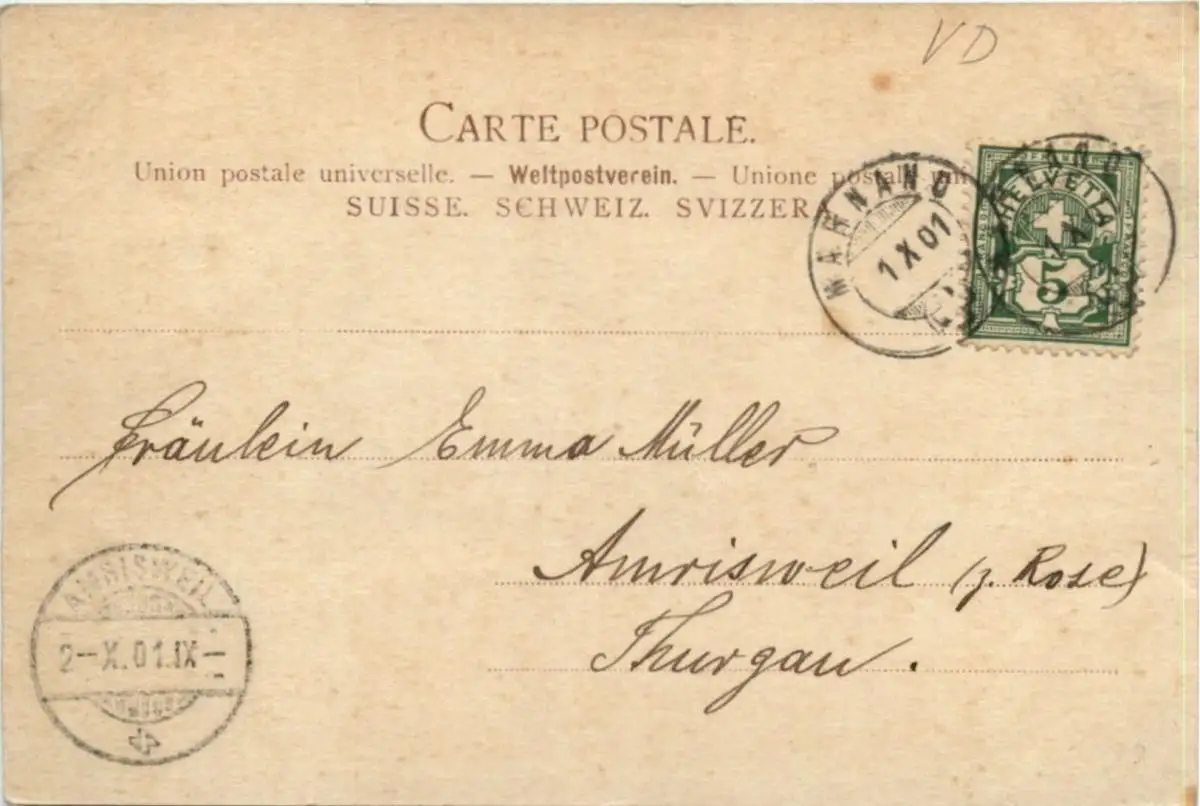 VD
CARTE POSTALE.
Union postale universelle. — Weltpostverein. — Unione postale uni
SUISSE. SCHWEIZ. SVIZZERA
MARNAND
1 X 01
HELVETIA
5
Fräulein Emma Müller
Amrisweil (z. Rose)
Thurgau.
AMRISWEIL
2–X.01.IX–